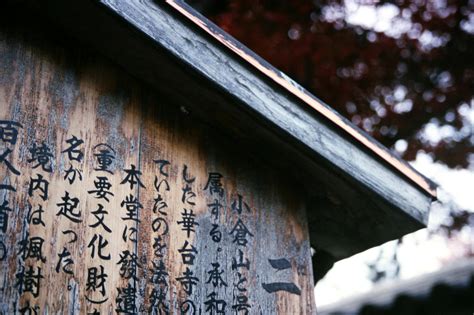 二
小倉山と号
属する。承和
した華台寺の
ていたのを法然
本堂に発遣
(重要文化財)
名が起った。
境内は楓樹
百人一首の